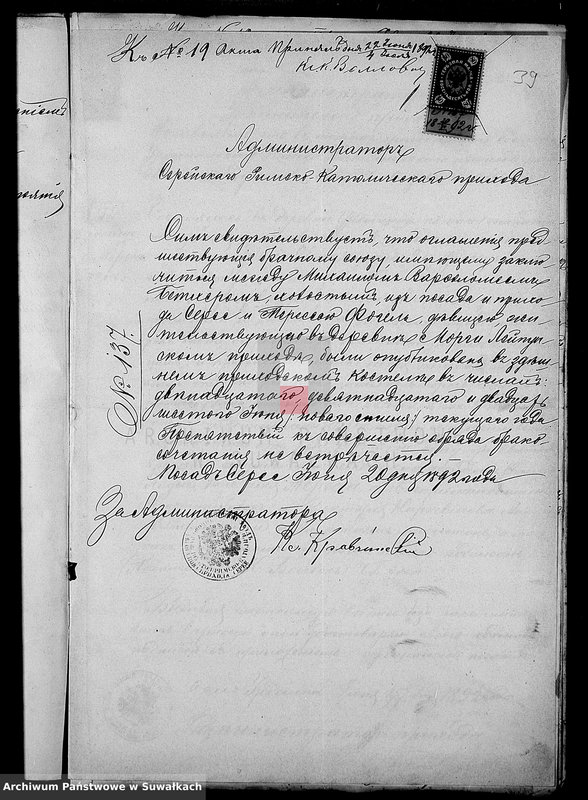 Къ № 19 Акта Принялъ дня 22 Іюня / 4 Іюля 1892 г.
Кс. К. Воллович
39
Администраторъ
Сереискаго Римско Католическаго прихода
Симъ свидѣтельствуетъ, что оглашенія пред
шествующія брачному союзу, имѣющему заклю
читься между Михаиломъ Варѳоломеемъ
холостымъ изъ посада и прихо
да Серее и Терессою дѣвицею жи
тельствующею въ деревни Морги Лейпун
скомъ приходѣ, были опубликованы въ здѣш
немъ приходскомъ костелѣ въ числахъ:
двѣнадцатого, девятнадцатого и двадцать
шестого Іюня /: новаго стиля :/ текущаго года
Препятствій къ совершенію обряда брако-
сочетанія не встрѣчается. —
Посадъ Серее Іюня 20 дня 1892 года
№ 137.
За Администратора
Кс. Кравчинскій
Archiwum Państwowe w Suwałkach